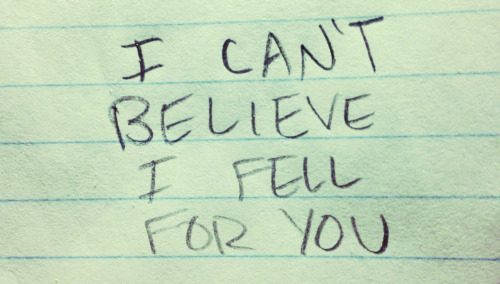 I CAN'T
BELIEVE
I FELL
FOR YOU